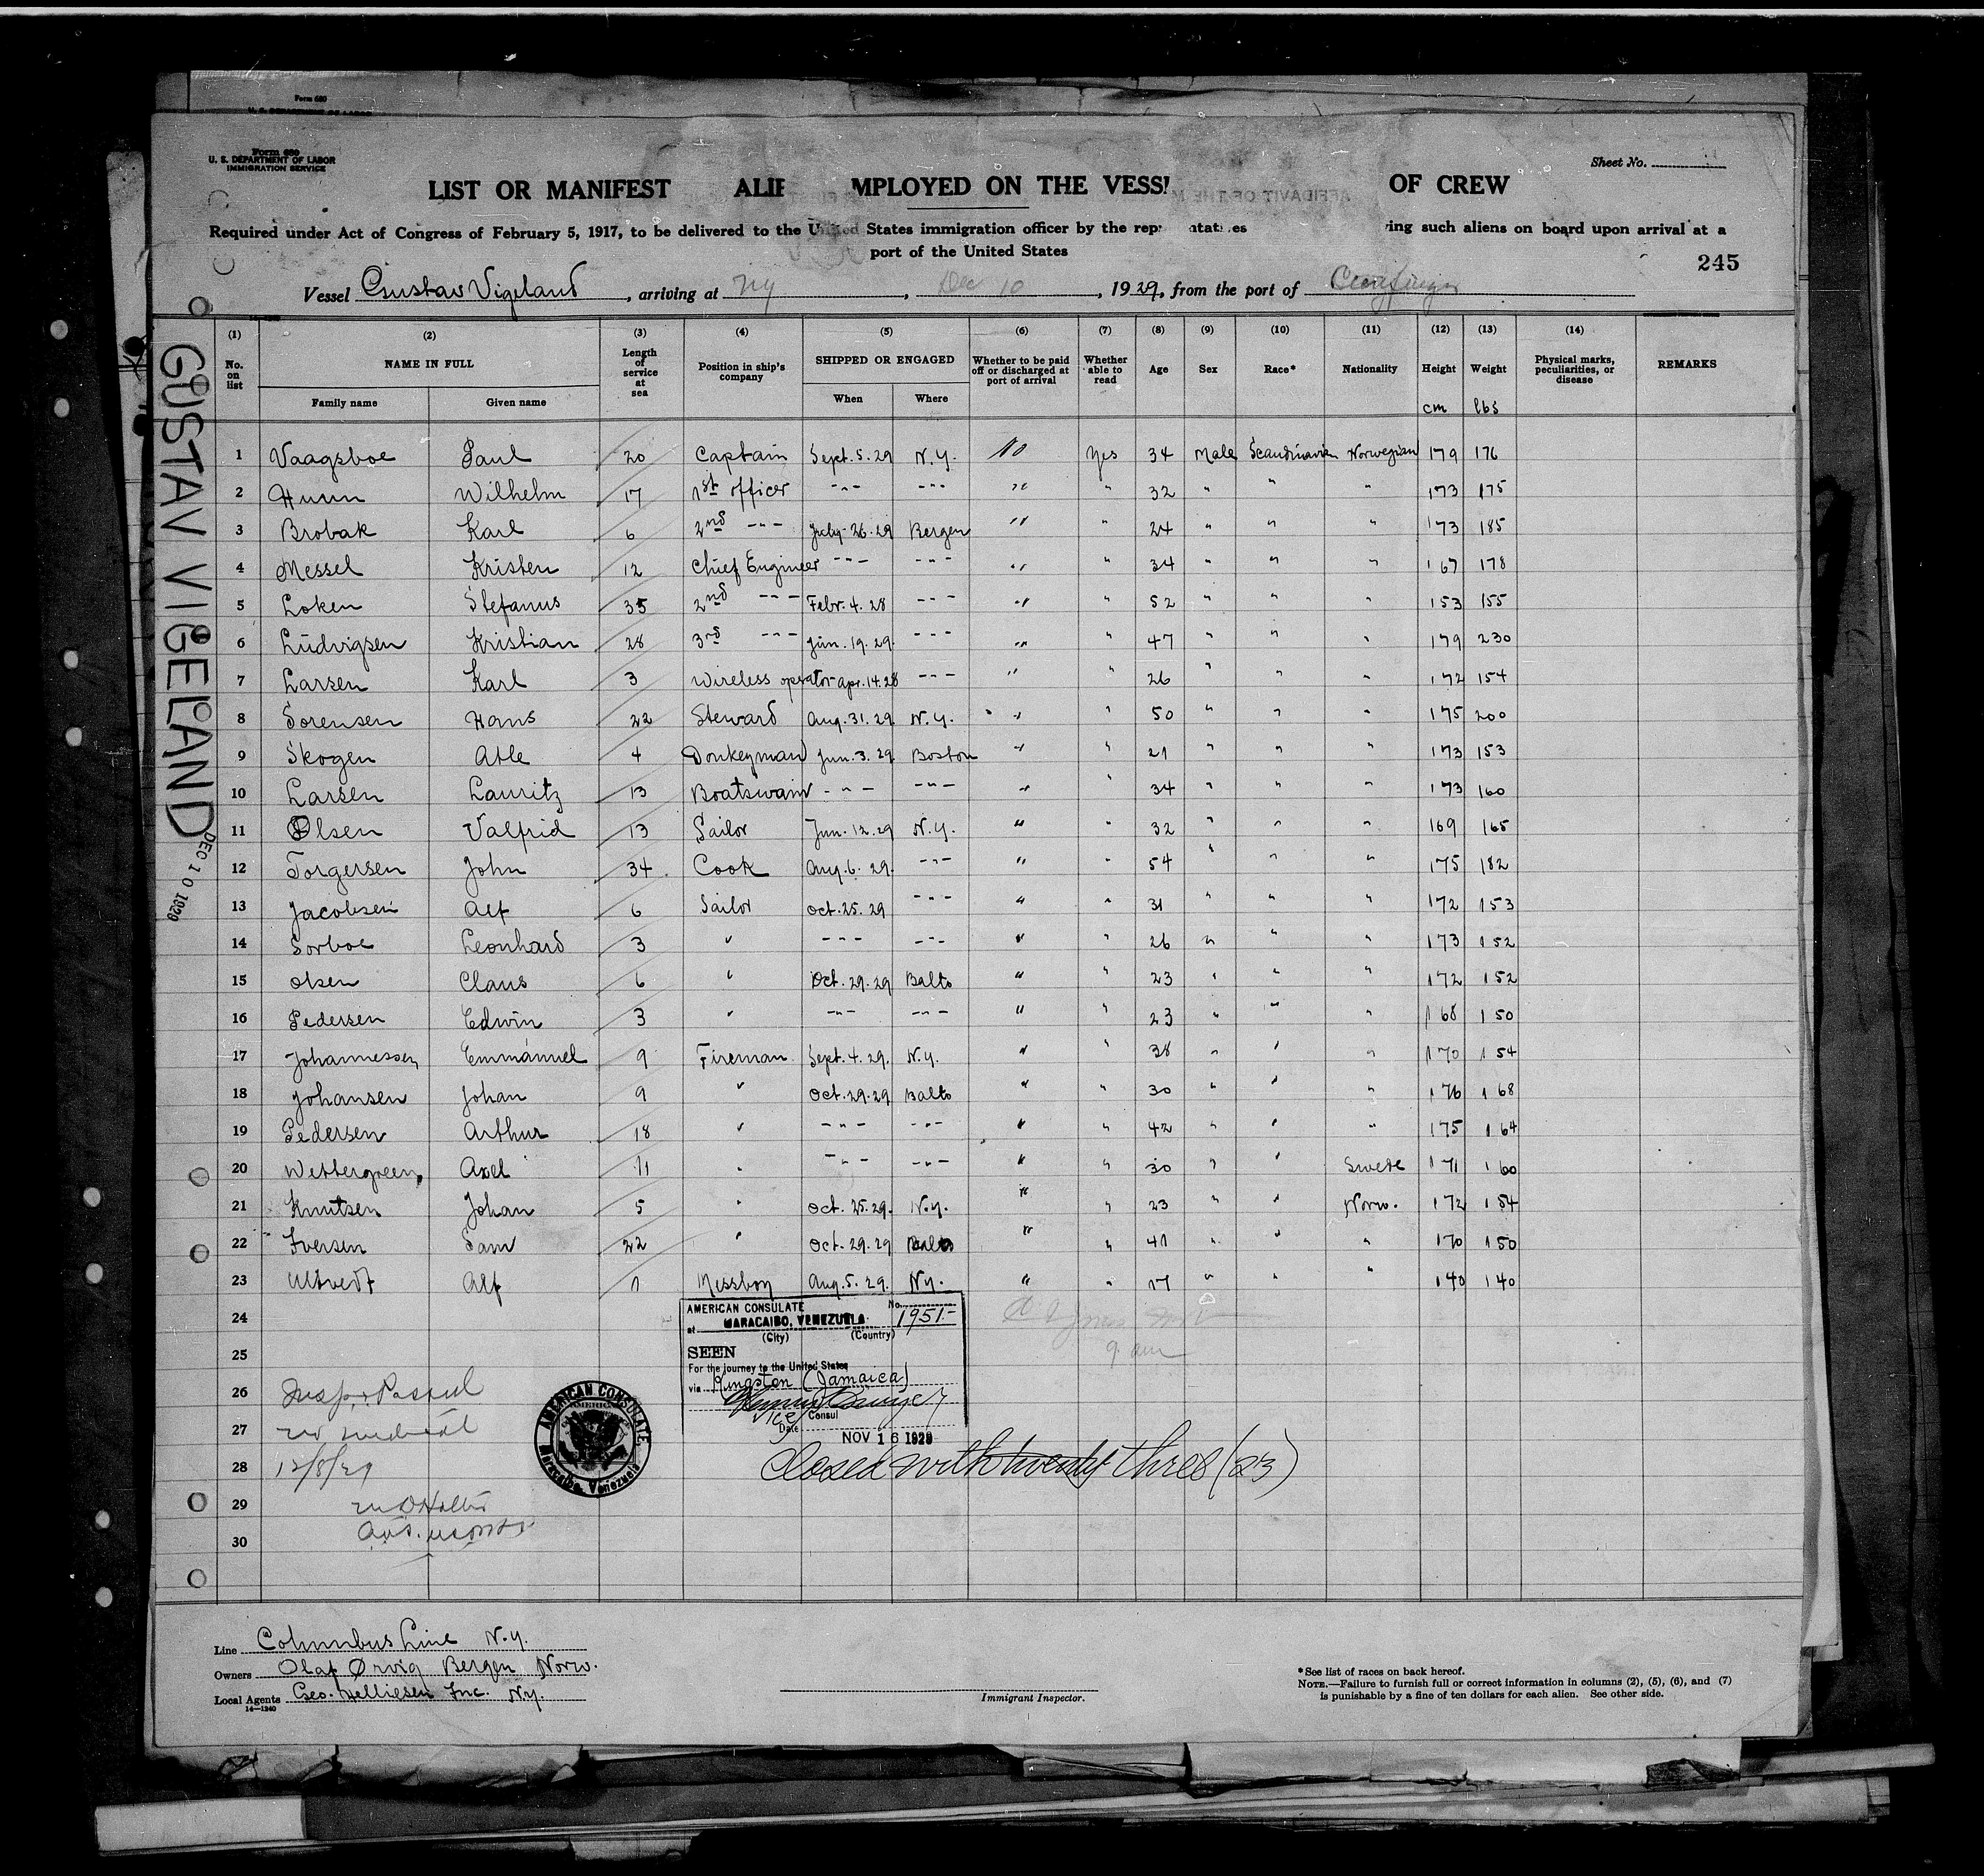 Form 680
U. S. DEPARTMENT OF LABOR
Form 680
U. S. DEPARTMENT OF LABOR
IMMIGRATION SERVICE
Sheet No.
LIST OR MANIFEST ALIE MPLOYED ON THE VESS OF CREW
Required under Act of Congress of February 5, 1917, to be delivered to the United States immigration officer by the repr ntati es ing such aliens on board upon arrival at a
port of the United States
245
Vessel Gustav Vigeland, arriving at NY, Dec 10, 1929, from the port of
GUSTAV VIGELAND
DEC 10 1929
(1) (2) (3) (4) (5) (6) (7) (8) (9) (10) (11) (12) (13) (14)
No. on list NAME IN FULL Length of service at sea Position in ship's company SHIPPED OR ENGAGED Whether to be paid off or discharged at port of arrival Whether able to read Age Sex Race* Nationality Height Weight Physical marks, peculiarities, or disease REMARKS
Family name Given name When Where cm lbs
1 Vaagsboe Paul 20 Captain Sept. 5. 29 N.Y. No Yes 34 Male Scandinavian Norwegian 179 176
2 Wilhelm 17 1st officer --- --- " " 32 " " " 173 175
3 Brobak Karl 6 2nd --- July 26. 29 Bergen " " 24 " " " 173 185
4 Messel Kristen 12 Chief Engineer --- --- " " 34 " " " 167 178
5 Loken Stefanus 35 2nd --- Febr. 4. 28 --- " " 52 " " " 153 155
6 Ludvigsen Kristian 28 3rd --- Jun. 19. 29. --- " " 47 " " " 179 230
7 Larsen Karl 3 Wireless operator apr. 14. 28 --- " " 26 " " " 172 154
8 Sorensen Hans 22 Steward Aug. 31. 29 N.Y. " " 50 " " " 175 200
9 Skogen Atle 4 Donkeyman Jun. 3. 29 Boston " " 21 " " " 173 153
10 Larsen Lauritz 13 Boatswain --- --- " " 34 " " " 173 160
11 Olsen Valfrid 13 Sailor Jun. 12. 29 N.Y. " " 32 " " " 169 165
12 Torgersen John 34 Cook Aug. 6. 29. --- " " 54 " " " 175 182
13 Jacobsen Alf 6 Sailor Oct. 25. 29 --- " " 31 " " " 172 153
14 Sorboe Leonhard 3 " --- --- " " 26 " " " 173 152
15 Olsen Claus 6 " Oct. 29. 29 Balto " " 23 " " " 172 152
16 Pedersen Edwin 3 " --- --- " " 23 " " " 168 150
17 Johannessen Emmanuel 9 Fireman Sept. 4. 29. N.Y. " " 38 " " " 170 154
18 Johansen Johan 9 " Oct. 29. 29 Balto " " 30 " " " 176 168
19 Pedersen Arthur 18 " --- --- " " 42 " " " 175 164
20 Wettergreen, Axel 11 " --- --- " " 30 " " Swede 171 160
21 Knutsen Johan 5 " Oct. 25. 29. N.Y. " " 23 " " Norw. 172 154
22 Iversen Sam 22 " Oct. 29. 29 Balto " " 41 " " " 170 150
23 Ultvedt Alf 1 Messboy Aug. 5. 29. N.Y. " " 17 " " " 140 140
24
25 9 am
26
27
28 12/8/29
29
30
AMERICAN CONSULATE No. 1951-
at MARACAIBO, VENEZUELA
(City) (Country)
SEEN
For the journey to the United States
via Kingston (Jamaica)
Vice Consul
Date NOV 16 1929
AMERICAN CONSULATE, Maracaibo, Venezuela
Closed with twenty three (23)
Line Columbus Line N.Y.
Owners Olaf Ørvig Bergen Norw.
Local Agents Geo. Helliesen Inc. NY.
14—1240
Immigrant Inspector.
*See list of races on back hereof.
NOTE.—Failure to furnish full or correct information in columns (2), (5), (6), and (7)
is punishable by a fine of ten dollars for each alien. See other side.